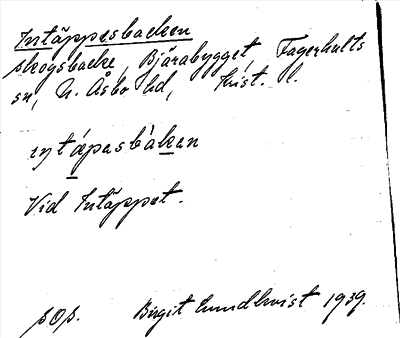 Intäppesbacken
skogsbacke, Bjärabygget, Fagerhults
sn, N. Åsbo hd, Krist. l.
intápasbàkən
Vid Intäppet.
pOp. Birgit Lundkvist 1939.